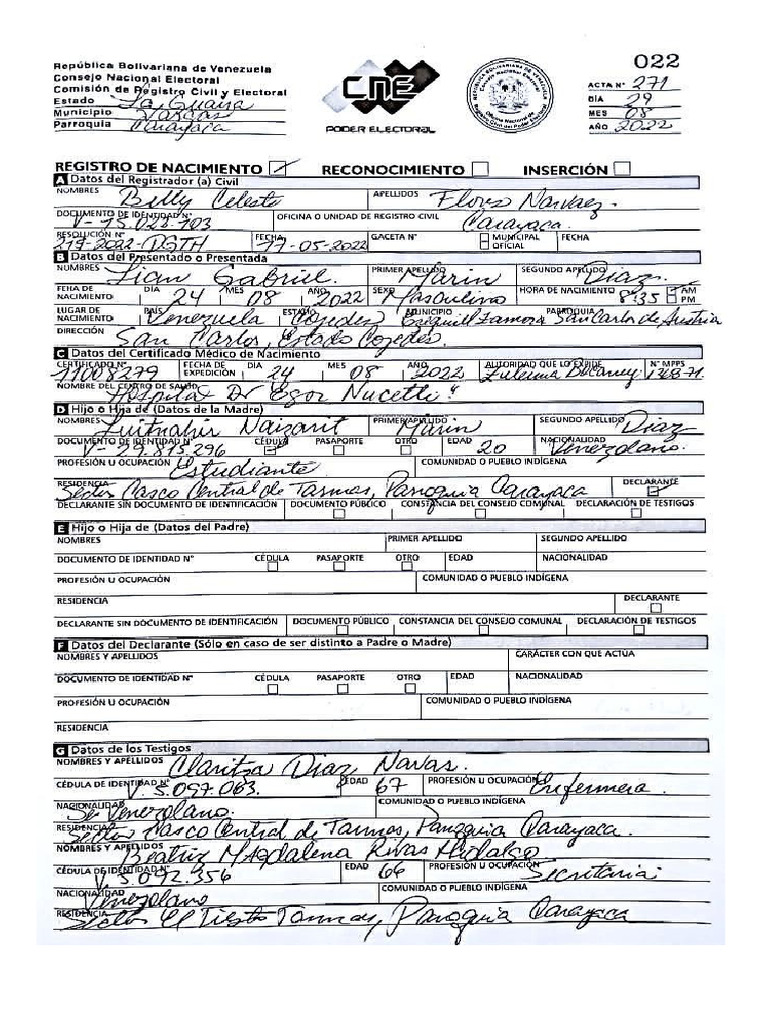 República Bolivariana de Venezuela
Consejo Nacional Electoral
Comisión de Registro Civil y Electoral
Estado La Guaira
Municipio Vargas
Parroquia Carayaca
CNE
PODER ELECTORAL
REPÚBLICA BOLIVARIANA DE VENEZUELA
Consejo Nacional Electoral
Oficina Nacional de Registro Civil del Poder Electoral
022
ACTA N° 271
DÍA 29
MES 08
AÑO 2022
REGISTRO DE NACIMIENTO RECONOCIMIENTO INSERCIÓN
A Datos del Registrador (a) Civil
NOMBRES Billy Celeste APELLIDOS Flores Narvaez.
DOCUMENTO DE IDENTIDAD N° V-15.028.103 OFICINA O UNIDAD DE REGISTRO CIVIL Carayaca.
RESOLUCIÓN N° 219-2022-DGTH FECHA 17-05-2022 GACETA N° MUNICIPAL OFICIAL FECHA
B Datos del Presentado o Presentada
NOMBRES Lian Gabriel. PRIMER APELLIDO Marin SEGUNDO APELLIDO Diaz.
FEHA DE NACIMIENTO DÍA 24 MES 08 AÑO 2022 SEXO Masculino HORA DE NACIMIENTO 8:35 AM PM
LUGAR DE NACIMIENTO PAÍS Venezuela ESTADO Cojedes MUNICIPIO Ezequiel Zamora PARROQUIA San Carlos de Austria
DIRECCIÓN San Carlos, Estado Cojedes.
C Datos del Certificado Médico de Nacimiento
CERTIFICADO N° 11008279 FECHA DE EXPEDICIÓN DÍA 24 MES 08 AÑO 2022 AUTORIDAD QUE LO EXPIDE N° MPPS
NOMBRE DEL CENTRO DE SALUD Hospital Dr Egor Nucette"
D Hijo o Hija de (Datos de la Madre)
NOMBRES PRIMER APELLIDO Marin SEGUNDO APELLIDO Diaz
DOCUMENTO DE IDENTIDAD N° V-29.815.296 CÉDULA PASAPORTE OTRO EDAD 20 NACIONALIDAD Venezolano.
PROFESIÓN U OCUPACIÓN Estudiante. COMUNIDAD O PUEBLO INDÍGENA
RESIDENCIA Sector Casco Central de Tarmas, Parroquia Carayaca DECLARANTE
DECLARANTE SIN DOCUMENTO DE IDENTIFICACIÓN DOCUMENTO PÚBLICO CONSTANCIA DEL CONSEJO COMUNAL DECLARACIÓN DE TESTIGOS
E Hijo o Hija de (Datos del Padre)
NOMBRES PRIMER APELLIDO SEGUNDO APELLIDO
DOCUMENTO DE IDENTIDAD N° CÉDULA PASAPORTE OTRO EDAD NACIONALIDAD
PROFESIÓN U OCUPACIÓN COMUNIDAD O PUEBLO INDÍGENA
RESIDENCIA DECLARANTE
DECLARANTE SIN DOCUMENTO DE IDENTIFICACIÓN DOCUMENTO PÚBLICO CONSTANCIA DEL CONSEJO COMUNAL DECLARACIÓN DE TESTIGOS
F Datos del Declarante (Sólo en caso de ser distinto a Padre o Madre)
NOMBRES Y APELLIDOS CARÁCTER CON QUE ACTÚA
DOCUMENTO DE IDENTIDAD N° CÉDULA PASAPORTE OTRO EDAD NACIONALIDAD
PROFESIÓN U OCUPACIÓN COMUNIDAD O PUEBLO INDÍGENA
RESIDENCIA
G Datos de los Testigos
NOMBRES Y APELLIDOS Claritza Diaz Navas.
CÉDULA DE IDENTIDAD N° V. 5.097.063. EDAD 67 PROFESIÓN U OCUPACIÓN Enfermera.
NACIONALIDAD Venezolano. COMUNIDAD O PUEBLO INDÍGENA
RESIDENCIA Sector Casco Central de Tarmas, Parroquia Carayaca.
NOMBRES Y APELLIDOS Beatriz Magdalena Rivas Hidalgo
CÉDULA DE IDENTIDAD N° V. 5.092.356 EDAD 66 PROFESIÓN U OCUPACIÓN Secretaria
NACIONALIDAD Venezolano COMUNIDAD O PUEBLO INDÍGENA
RESIDENCIA Sector El Tiesto Tarmas, Parroquia Carayaca